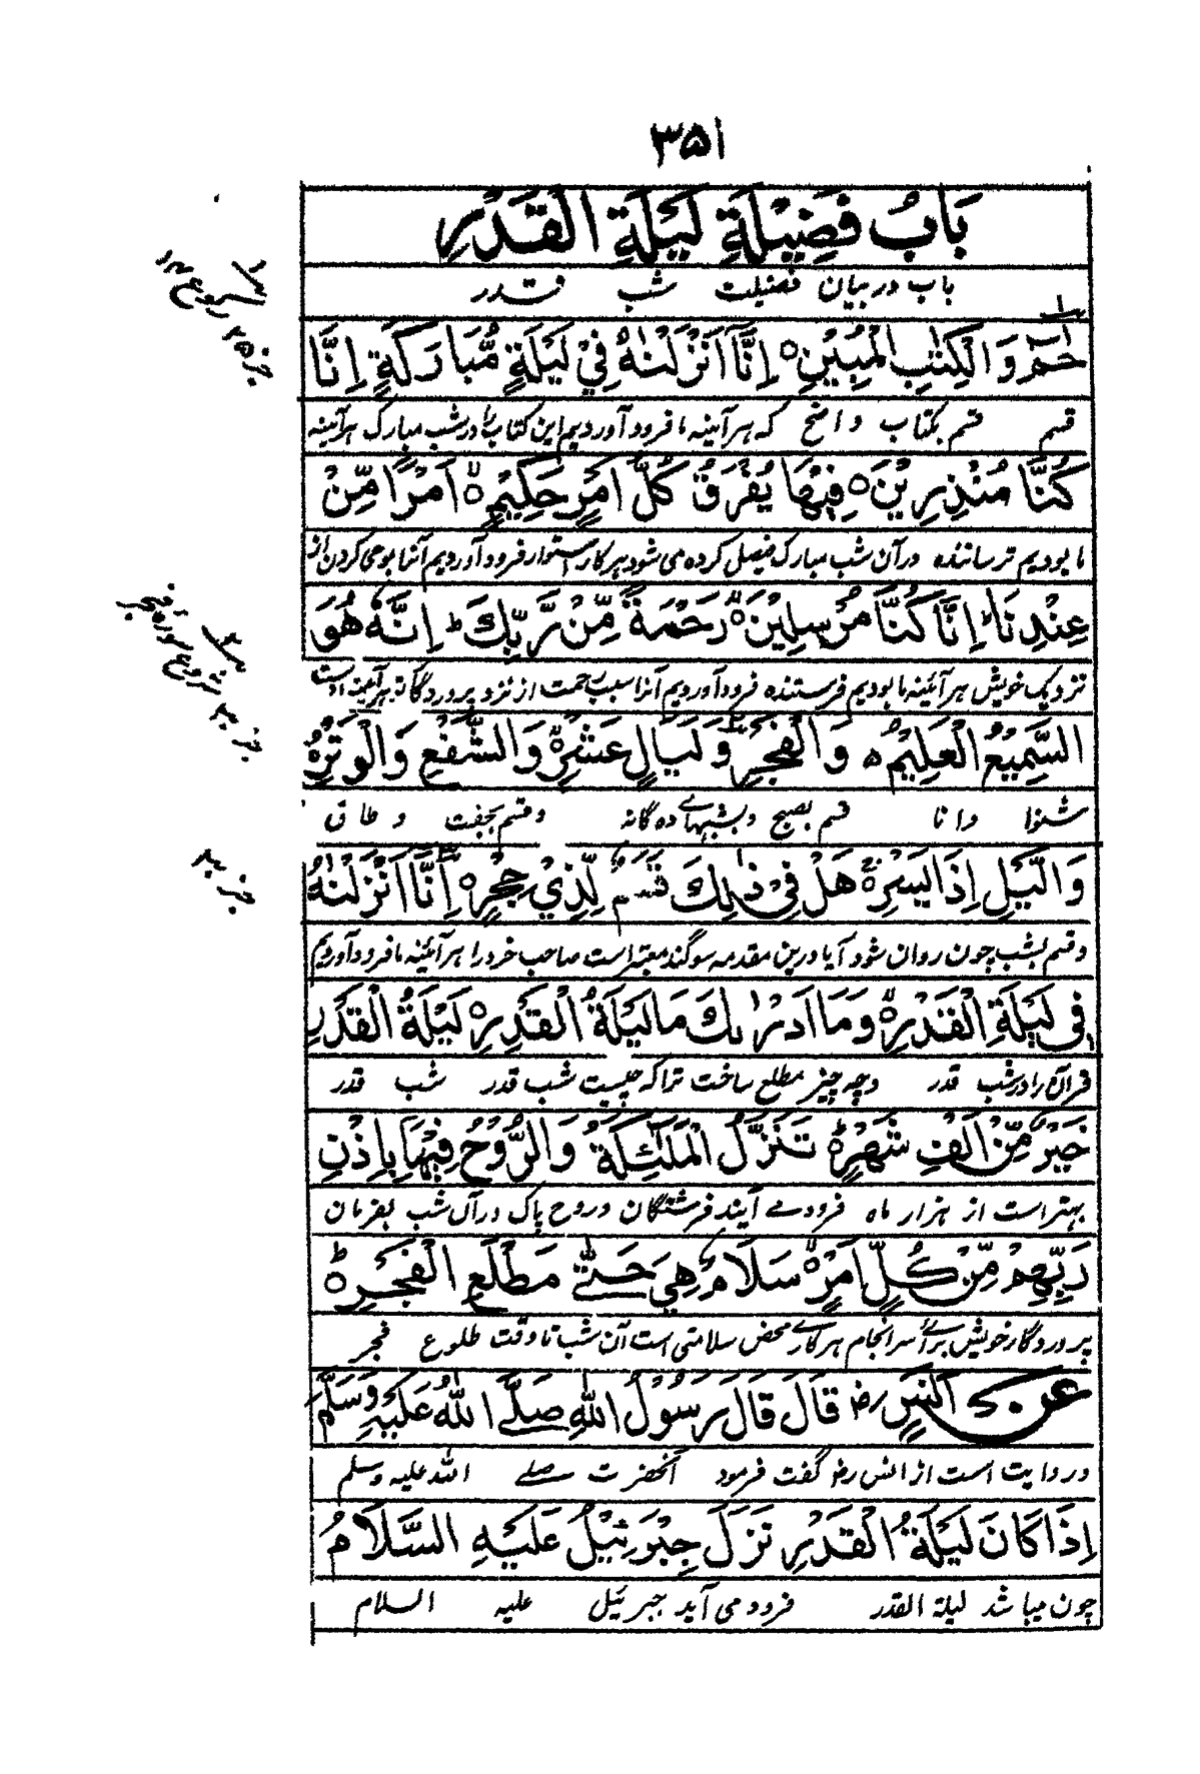 ۳۵۱
بَابُ فَضِیْلَةِ لَیْلَةِ الْقَدْرِ
باب در بیان فضیلت شب قدر
حٰمٓ وَالْکِتٰبِ الْمُبِیْنِ ○ اِنَّآ اَنْزَلْنٰهُ فِیْ لَیْلَةٍ مُّبَارَکَةٍ اِنَّا
قسم قسم بکتاب واضح که هر آئینه ما فرود آوردیم این کتاب را در شب مبارک هر آئینه
کُنَّا مُنْذِرِیْنَ ○ فِیْهَا یُفْرَقُ کُلُّ اَمْرٍ حَکِیْمٍ ○ اَمْرًا مِّنْ
ما بودیم ترساننده در آن شب مبارک فیصل کرده می شود هر کار استوار فرود آوردیم آنرا بوحی کردن از
عِنْدِنَا ؕ اِنَّا کُنَّا مُرْسِلِیْنَ ○ رَحْمَةً مِّنْ رَّبِّكَ ؕ اِنَّهٗ هُوَ
نزدیک خویش هر آئینه ما بودیم فرستنده فرود آوردیم آنرا بسبب رحمت از نزد پروردگار تو هر آئینه اوست
السَّمِیْعُ الْعَلِیْمُ ○ وَالْفَجْرِ ○ وَلَیَالٍ عَشْرٍ ○ وَالشَّفْعِ وَالْوَتْرِ ○
شنوا دانا قسم بصبح و بشبهائے ده گانه و قسم بجفت و طاق
وَالَّیْلِ اِذَا یَسْرِ ○ هَلْ فِیْ ذٰلِكَ قَسَمٌ لِّذِیْ حِجْرٍ ○ اِنَّآ اَنْزَلْنٰهُ
و قسم بشب چون روان شود آیا درین مقدمه سوگند معتبر است صاحب خرد را هر آئینه ما فرود آوردیم
فِیْ لَیْلَةِ الْقَدْرِ ○ وَمَآ اَدْرٰىكَ مَا لَیْلَةُ الْقَدْرِ ○ لَیْلَةُ الْقَدْرِ
قرآن را در شب قدر و چه چیز مطلع ساخت ترا که چیست شب قدر شب قدر
خَیْرٌ مِّنْ اَلْفِ شَهْرٍ ○ تَنَزَّلُ الْمَلٰٓئِکَةُ وَالرُّوْحُ فِیْهَا بِاِذْنِ
بهتر است از هزار ماه فرود مے آیند فرشتگان و روح پاک در آن شب بفرمان
رَبِّهِمْ مِّنْ کُلِّ اَمْرٍ ○ سَلَامٌ هِیَ حَتّٰی مَطْلَعِ الْفَجْرِ ○
پروردگار خویش برائے سرانجام هر کارے محض سلامتی است آن شب تا وقت طلوع فجر
عَنْ اَنَسٍ رض قَالَ قَالَ رَسُوْلُ اللّٰهِ صَلَّی اللّٰهُ عَلَیْهِ وَسَلَّمَ
و روایت است از انس رض گفت فرمود آنحضرت صلے الله علیه وسلم
اِذَا کَانَ لَیْلَةُ الْقَدْرِ نَزَلَ جِبْرَئِیْلُ عَلَیْهِ السَّلَامُ
چون میباشد لیلة القدر فرود می آید جبرئیل علیه السلام
جز ۲۵ رکوع ۱۴
جز ۳۰ شروع سورۀ فجر
جز ۳۰